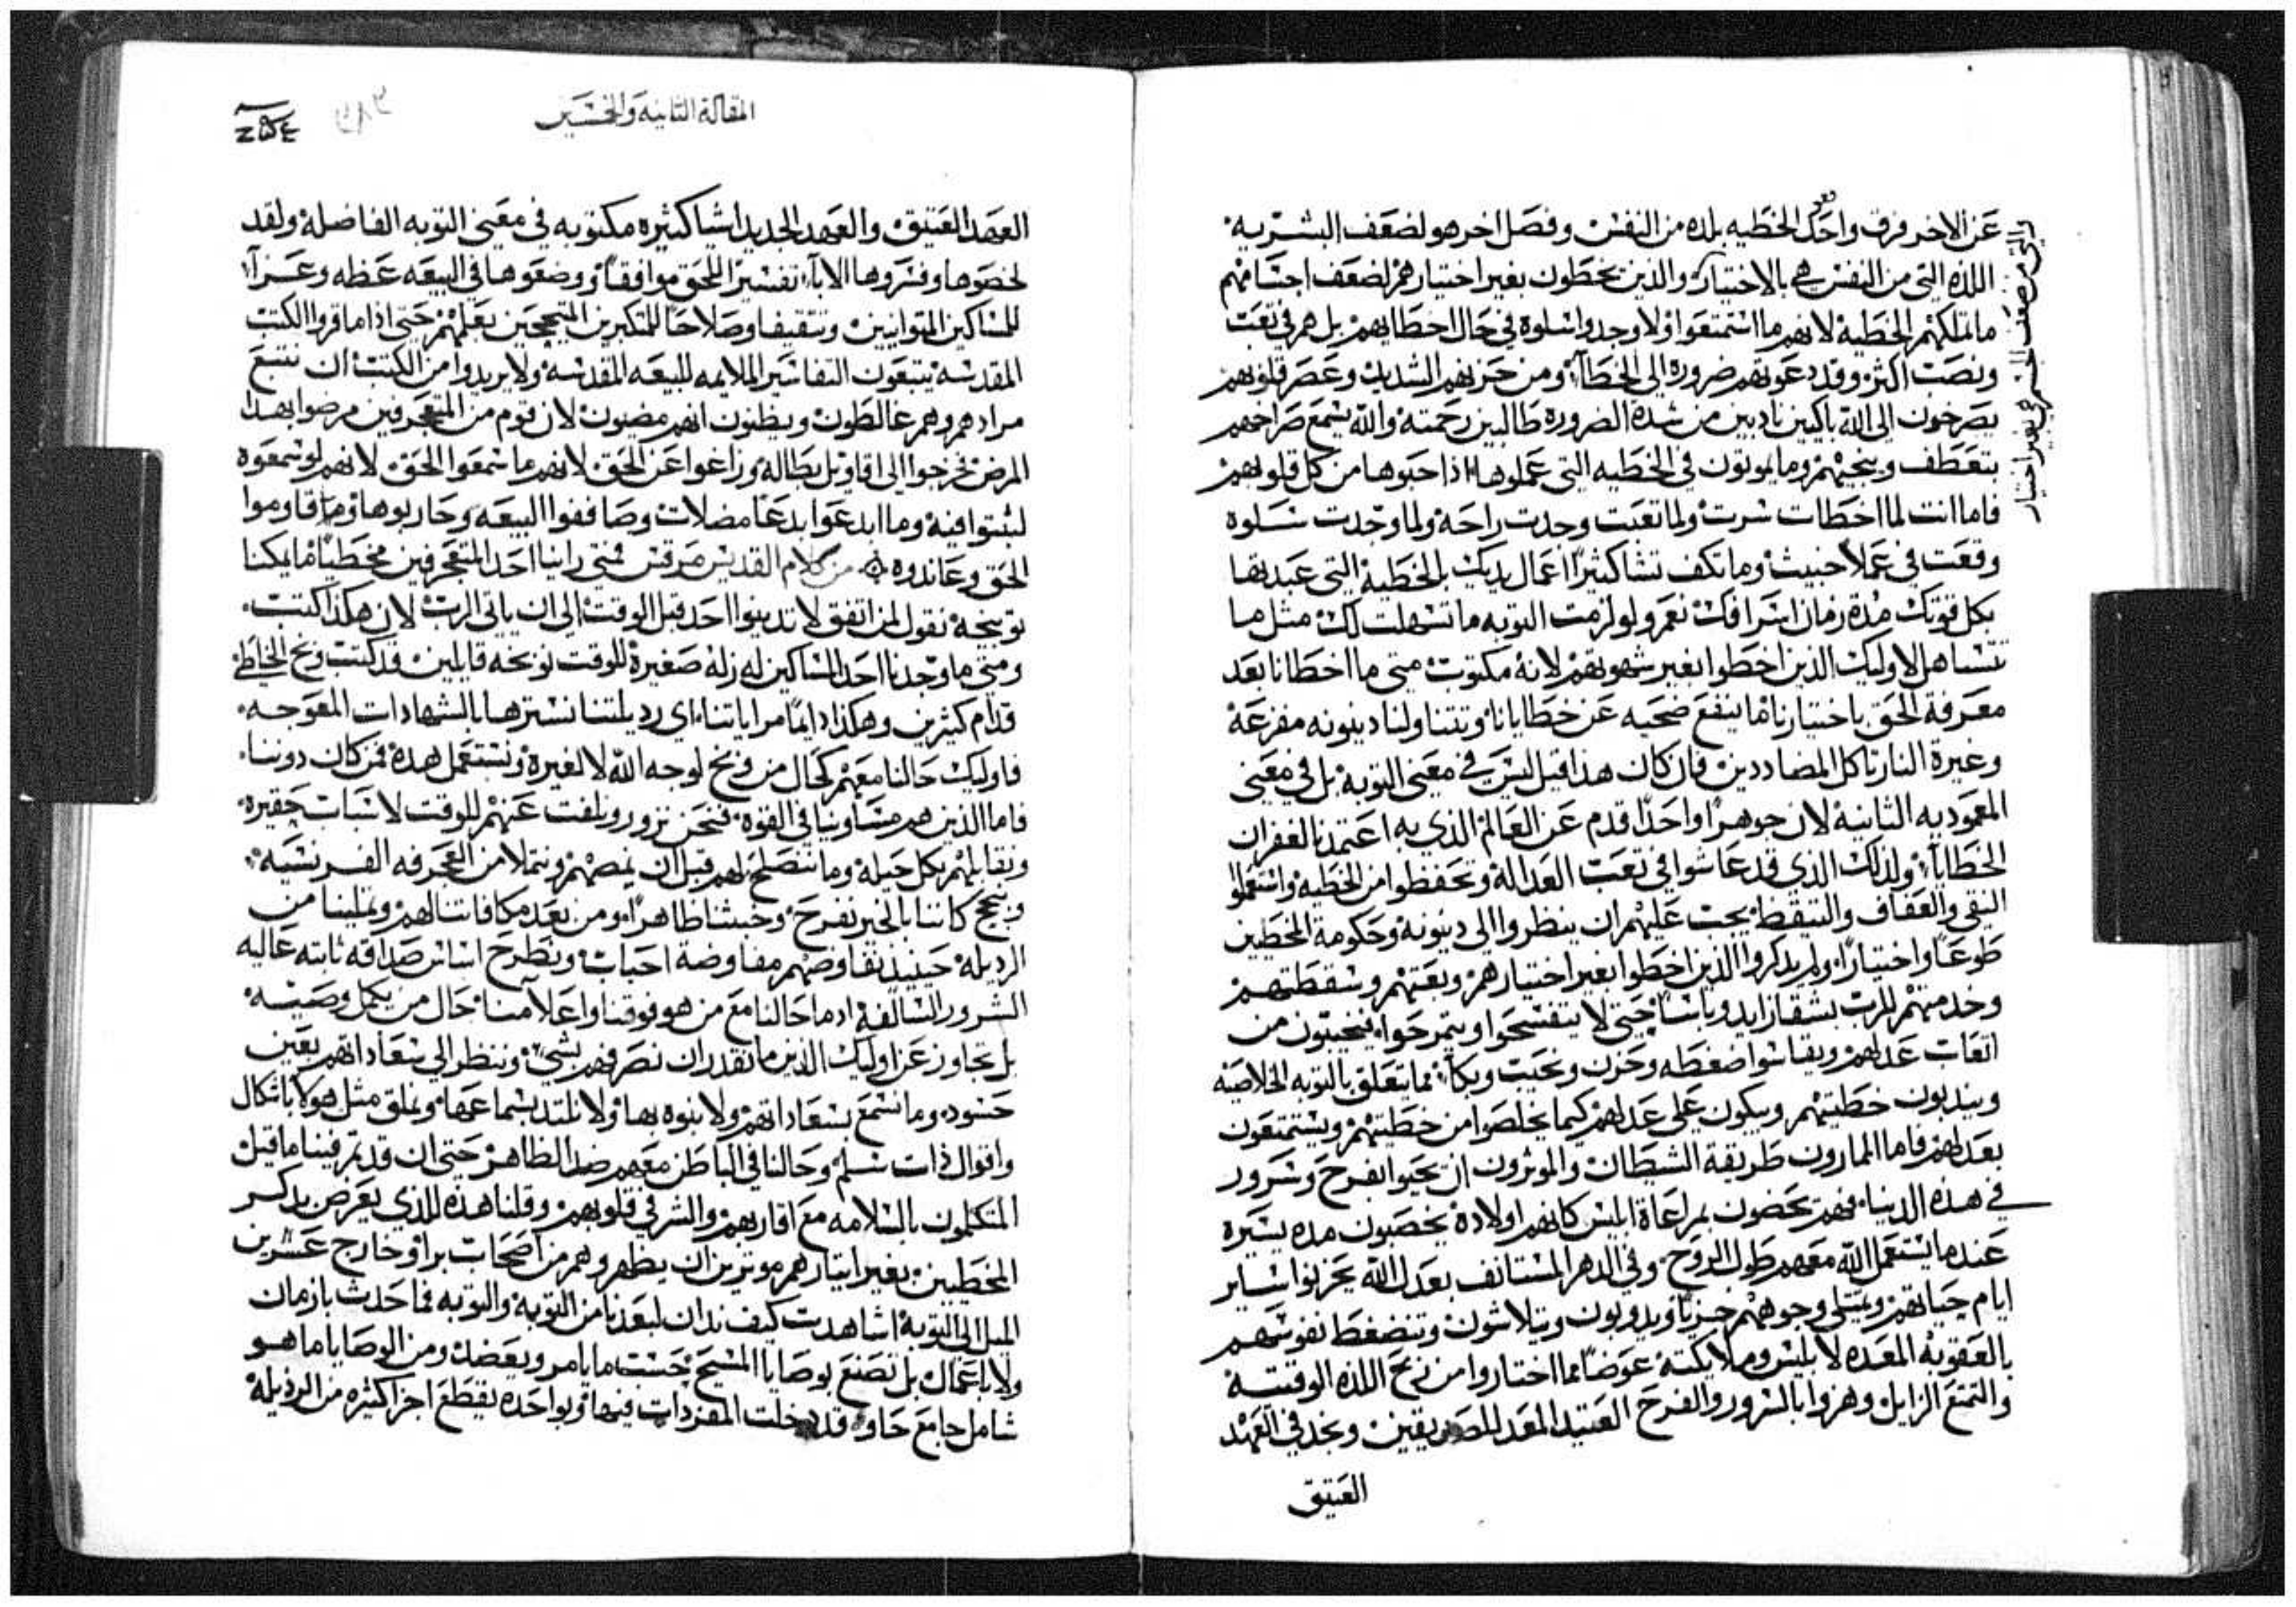 عن الاخر فرق واحد الخطيه بلده من النفس وفصل اخر هو لضعف البشريه
اللذه التي من النفس هي بالاختيار والذين يخطون بغير اختيارهم لضعف اجسامهم
ما تملكهم الخطية لانهم ما استمتعوا ولا وجدوا سلوة في حال اخطايهم بل هم في تعب
ونصب اكثر وقد دعوتهم ضروره الى الخطآ ومن حزنهم الشديد وعصر قلوبهم
يصرخون الى الله باكيين نادبين من شدة الضروره طالبين رحمته والله يسمع صراخهم
بتعطف وينجيهم وما يموتون في الخطيه التي عملوها اذا من كل قلوبهم
فاما انت لما اخطات سررت ولما تعبت وجدت راحة ولما وجدت سلوه
وقعت في عملا خبيث وما تكف تشا كثيرًا اعمال يديك بالخطية التي عبدتها
بكل قوتك مدة زمان اسرافك نعم ولو لزمت التوبه ما تسهلت لك مثل ما
تتساهل لاوليك الذين اخطوا بغير شهوتهم لانه مكتوب متى ما اخطانا بعد
معرفة الحق باختيارنا ما ينفع ضحيه عن خطايانا وتتناولنا دينونه مفزعة
وغيرة النار تاكل المضاددين فان كان هذا قيل ليس في معنى التوبة بل في معنى
المعموديه الثانية لان جوهرًا واحدًا قدم عن العالم الذي به اعتمدنا لغفران
الخطايا ولذلك الذي قد عاشوا في تعب العدالة وتحفظوا من الخطية واستعملوا
النقي والعفاف والتيقظ يجب عليهم ان ينظروا الى دينونة وحكومة المخطين
طوعًا واختيارًا ولم يذكروا الذين اخطوا بغير اختيارهم وسقطتهم
وخدمتهم للرب بشقا زايد وباسا حتى لا يتفسحوا ويتمرحوا فيخيبون من
اتعاب عدلهم ويقاسوا ضغطه وحزن ونحيب وبكآ مما يتعلق بالتوبه الخلاصيه
ويندبون خطيتهم ويبكون على عدلهم كيما يخلصوا من خطيتهم ويستمتعون
بعدلهم فاما المارون طريقة الشيطان والموثرون ان يحيوا بفرح وسرور
في هذه الدنيا فهم يحضون بمراعاة ابليس كانهم اولادة يخصبون مده يسيره
عندما يستعمل الله معهم طول الروح وفي الدهر المستانف بعدل الله يحزنوا ساير
ايام حياتهم وتمتلى وجوههم خزيًا ويدوبون ويتلاشون وتنضغط نفوسهم
بالعقوبة المعده لابليس وملايكته عوضًا مما اختاروا من ربح اللذه الوقتية
والتمتع الزايل وهزوا بالسرور والفرح العتيد المعد للصديقين ونجد في العهد
العتيق
والتي من ضعف الجسم هي بغير اختيار
المقالة الثانيه والخمسين
العهد العتيق والعهد الجديد اشيا كثيره مكتوبه في معنى التوبه الفاضله ولقد
لخصوها وفسروها الابآ تفسيرًا للحق موافقًا ووضعوها في البيعه عظه وعزآ
للمساكين المتوانيين وتثقيفا وصلاحًا للمتكبرين المتبجحين بعلمهم حتى اذا ما قروا الكتب
المقدسة يتبعون التفاسير الملايمه للبيعه المقدسة ولا يريدوا من الكتب ان تتبع
مرادهم وهم غالطون ويظنون انهم مضيون لان قوم من المتعجرفين مرضوا بهذا
المرض فخرجوا الى اقاويل بطالة وزاغوا عن الحق لانهم ما سمعوا الحق لانهم لو سمعوه
لثبتوا فيه وما ابدعوا بدعًا مضلات وصاففوا البيعه وحاربوها وما قاوموا
الحق وعاندوه من كلام القديس مرقس فمتى راينا احد المتعجرفين مخطيًا ما يمكنا
توبيخه نقول لمن اتفق لا تدينوا احد قبل الوقت الى ان ياتي الرب لان هكذا كتب
ومتى ما وجدنا احد المساكين له زله صغيرة للوقت نوبخه قايلين قد كتب وبخ الخاطي
قدام كثيرين وهكذا دايمًا مراياتنا اي رذيلتنا نسترها بالشهادات المعوجه
فاوليك حالنا معهم كحال من وبخ لوجه الله لا لغيرة ونستعمل هذه فمن كان دوننا
فاما الذين هم مساوينا في القوة فنحن نزور ونلفت عنهم للوقت لاسباب حقيره
ونقابلهم بكل حيلة وما نتصلح لهم قبل ان ونتملا من العجرفه الفرنسيه
كاننا بالخير نفرح وخبثنا ظاهرًا ومن بعد مكافاتنا لهم وتملينا من
الرذيلة حينيذ نفاوضهم مفاوضة احباب ونطرح اساس صداقه ثابته عاليه
الشرور السالفة اذ ما حالنا مع من هو فوقنا واعلا منا حال من يكمل وصيته
بل تجاوز عن اوليك الذين ما نقدر ان نصرفهم بشي وننظر الى سعاداتهم بعين
حسود وما نسمع بسعاداتهم ولا ننوه بها ولا نلتد بسماعها ونملق مثل هولا باشكال
واقوال ذات سلم وحالنا في الباطن معهم ضد الظاهر حتى ان قد تم فينا ما قيل
المتكلمون بالسلامه مع اقاربهم والشر في قلوبهم وقلنا هذه للذي يعرض بذكر
المخطيين بغير ايثارهم موثرين ان يظهروهم من اصحاب برا وخارج عشرين
الميل الى التوبة اشاهدت كيف ندان لبعدنا من التوبة والتوبه فما حدث بازمان
ولا باعمال بل تصنع بوصايا المسيح حسب ما يامر ويعضد ومن الوصايا ما هو
شامل جامع حاو قد دخلت المفردات فيها وبواحده يقطع اجزا كثيره من الرذيلة